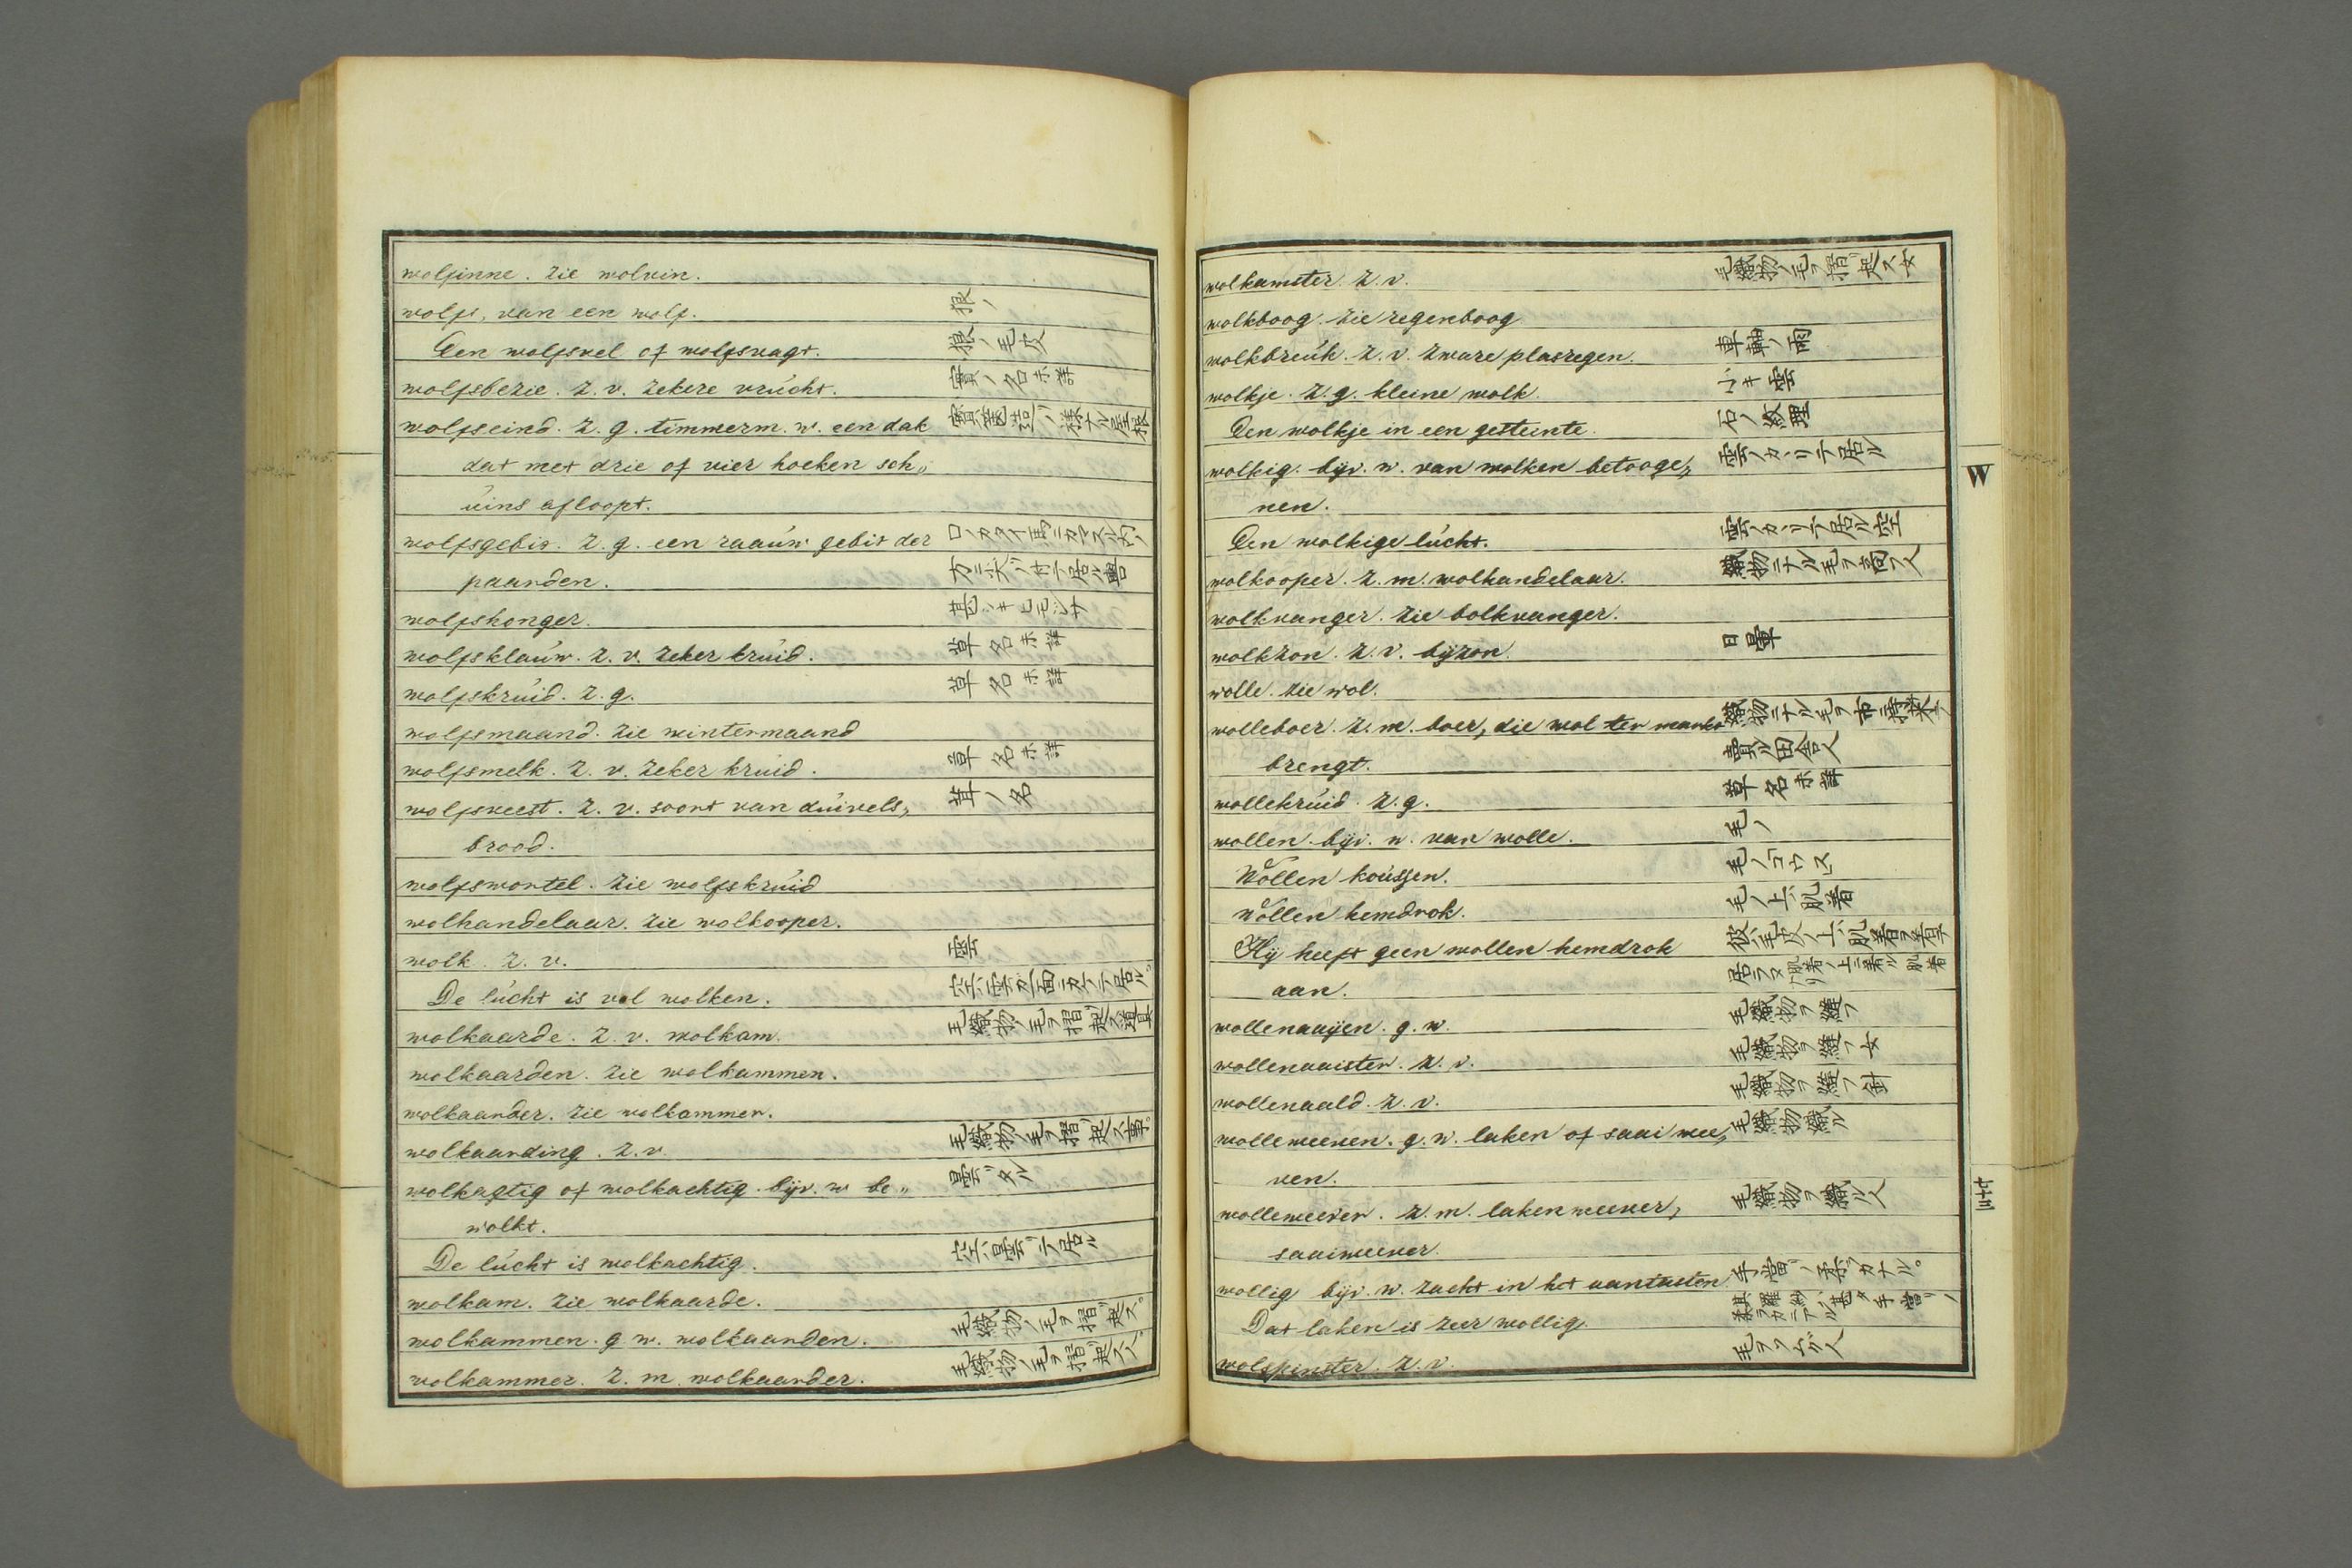 wolfinne. zie wolvin.
wolfs, van een wolf. 狼ノ
Een wolfsvel of wolfsvagt. 狼ノ毛皮
wolfsbezie. z. v. zekere vrúcht. 實ノ名未詳
wolfseind. z. g. timmerm. w. een dak
dat met drie of vier hoeken sch„
úins afloopt.
wolfsgebit. z. g. een raaúw gebit der
paarden.
wolfshonger.
wolfsklaúw. z. v. zeker krúid. 草名未詳
wolfskrúid. z. g. 草名未詳
wolfsmaand. zie wintermaand
wolfsmelk. z. v. zeker kruid. 草名未詳
wolfsveest. z. v. soort van dúivels„ 茸ノ名
brood.
wolfswortel. zie wolfskrúid
wolhandelaar. zie wolkooper.
wolk. z. v. 雲
De lúcht is vol wolken.
wolkaarde. z. v. wolkam. 毛織物ノ毛ヲ摺起ス道具
wolkaarden. zie wolkammen.
wolkaarder. zie wolkammer.
wolkaarding. z. v. 毛織物ノ毛ヲ摺起ス事。
wolkagtig of wolkachtig. bijv. w be„ 曇リタル
wolkt.
De lúcht is wolkachtig. 空ハ曇リテ居ル
wolkam. zie wolkaarde.
wolkammen. g w. wolkaarden. 毛織物ノ毛ヲ摺起ス。
wolkammer. z. m. wolkaarder. 毛織物ノ毛ヲ摺起ス人
wolkamster. z. v. 毛織物ノ毛ヲ摺起ス女
wolkboog. zie regenboog
wolkbreúk. z. v. zware plasregen. 車軸ノ雨
wolkje. z. g. kleine wolk. 小キ雲
Een wolkje in een gesteinte. 石ノ紋理
wolkig. bijv. w. van wolken betooge„ 雲ノカヽリテ居ル
nen.
Een wolkige lúcht. 雲ノカヽリテ居ル空
wolkooper. z. m. wolhandelaar. 織物ニナル毛ヲ商フ人
wolkvanger. zie bolkvanger.
wolkzon. z. v. bijzon. 日暈
wolle. zie wol.
wolleboer. z. m. boer, die wol ter markt 織物ニナル毛ヲ市ニ持来リ
brengt. 賣ル田舎人
wollekrúid. z. g. 草名未詳
wollen. bijv. w. van wolle. 毛ノ
Wollen koússen.
Wollen hemdrok. 毛ノ上ハ肌着
Hij heeft geen wollen hemdrok
aan.
wollenaaijen. g. w. 毛織物ヲ縫フ
wollenaaister. z. v. 毛織物ヲ縫フ女
wollenaald. z. v. 毛織物ヲ縫フ針
wolleweeven. g. w. laken of saai wee„ 毛織物織ル
ven.
wolleweever. z. m. lakenweever, 毛織物ヲ織ル人
saaiweever.
wollig bijv. w. zacht in het aantasten. 手當リノ柔カナル。
Dat laken is zeer wollig.
wolspinster. z. v. 毛ヲツムグ人
W